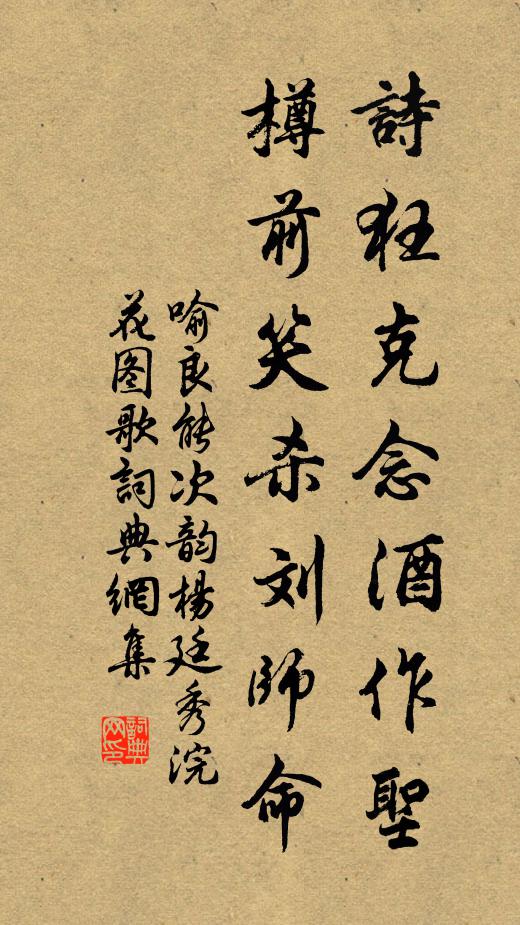 詩狂克念酒作聖
樽前笑杀刘師命
喻良能次韵楊廷秀浣
花图歌詞典網集
詞典
网印